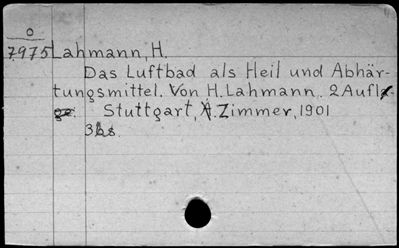 O
7975 Lahmann, H.
Das Luftbad als Heil und Abhär-
tungsmittel. Von H. Lahmann. 2 Aufl.
Stuttgart, A. Zimmer, 1901